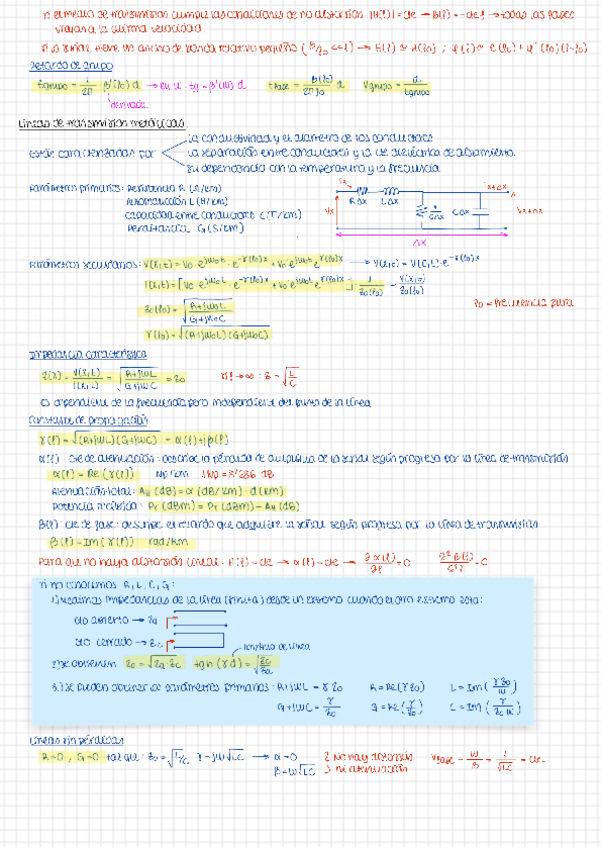 si el medio de transmisión cumple las condiciones de no distorsión |H(f)| = cte → B(f) = -af → todas las fases
viajan a la misma velocidad
si la señal tiene un ancho de banda relativo pequeño (B/f0 <<1) →
Retardo de grupo
tgrupo = 1/2π β'(f0) d → en ω: tg = β'(ω) d tfase = β(f0)/2πf0 d Vgrupo = d/tgrupo
derivada
Líneas de transmisión metálicas
La conductividad y el diámetro de los conductores
están caracterizadas por
La separación entre conductores y la cte dieléctrica de aislamiento
su dependencia con la temperatura y la frecuencia
Parámetros primarios: Resistencia R (Ω/km)
Autoinducción L (H/km)
Capacidad entre conductores C (F/km)
Perditancia G (S/km)
Ix RΔx LΔx GΔx CΔx Ix+Δx
Vx Vx+Δx
Δx
Parámetros secundarios: V(x,t) = V0·e^jω0t·e^-γ(f0)x + V0·e^jω0t·e^γ(f0)x → V(x,t) = V(0,t)·e^-γ(f0)x
I(x,t) = [V0·e^jω0t·e^-γ(f0)x + V0·e^jω0t·e^γ(f0)x] · 1/Z0(f0) = V(x,t)/Z0(f0)
Z0(f0) = √((R+jω0L)/(G+jω0C))
f0 = frecuencia pura
γ(f0) = √((R+jω0L)(G+jω0C))
Impedancia característica
Z(x) = V(x,t)/I(x,t) = √((R+jωL)/(G+jωC)) = Z0 si f → ∞ : Z = √(L/C)
Es dependiente de la frecuencia pero independiente del punto de la línea
Constante de propagación
γ(f) = √((R+jωL)(G+jωC)) = α(f)+jβ(f)
α(f): cte de atenuación: describe la pérdida de amplitud de la señal según progresa por la línea de transmisión
α(f) = Re(γ(f)) Np/km 1Np = 8'686 dB
Atenuación total: Att (dB) = α (dB/km) · d(km)
Potencia recibida: Pr (dBm) = Pt (dBm) - Att (dB)
β(f): cte de fase: describe el retardo que adquiere la señal según progresa por la línea de transmisión
β(f) = Im(γ(f)) rad/km
Para que no haya distorsión lineal: H(f) = cte → α(f) = cte → ∂α(f)/∂f = 0 ∂²β(f)/∂f² = 0
si no conocemos R, L, C, G:
1) Medimos impedancias de la línea (finita) desde un extremo cuando el otro extremo está:
cto abierto → Za
cto cerrado → Zc
longitud de línea
2) Se obtienen Z0 = √(Za·Zc) tgh(γd) = √(Zc/Za)
3) Se pueden obtener los parámetros primarios: R+jωL = γZ0 R = Re(γZ0) L = Im(γZ0/ω)
G+jωC = γ/Z0 G = Re(γ/Z0) C = Im(γ/Z0ω)
Líneas sin pérdidas
R=0, G=0 tal que: Z0 = √(L/C) γ = jω√LC → α=0 no hay distorsión Vfase = ω/β = 1/√LC = cte
β = ω√LC ni atenuación